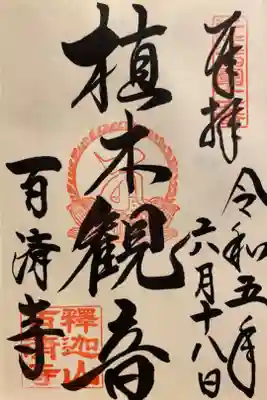 奉拝
令和五年
六月十八日
植木観音
百済寺
釋迦山
百済寺